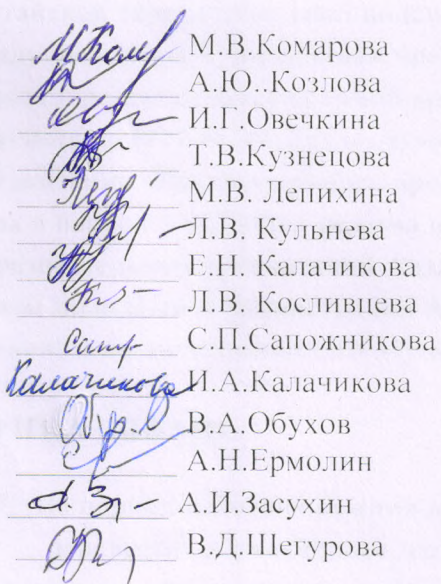 М.В.Комарова
А.Ю..Козлова
И.Г.Овечкина
Т.В.Кузнецова
М.В. Лепихина
Л.В. Кульнева
Е.Н. Калачикова
Л.В.Косливцева
С.П.Сапожникова
Калачикова И.А.Калачикова
В.А.Обухов
А.Н.Ермолин
А.И.Засухин
В.Д.Шегурова